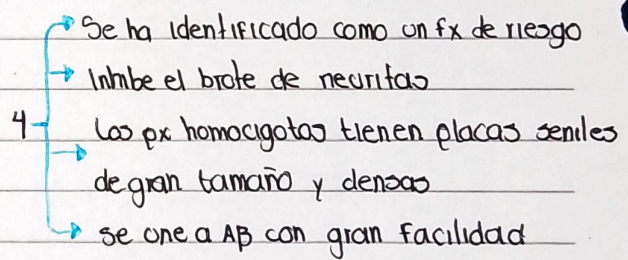 Se ha identificado como un fx de riesgo
Inhibe el brote de neuritas
4
Los px homocigotas tienen placas seniles
de gran tamaño y densas
se une a AB con gran facilidad